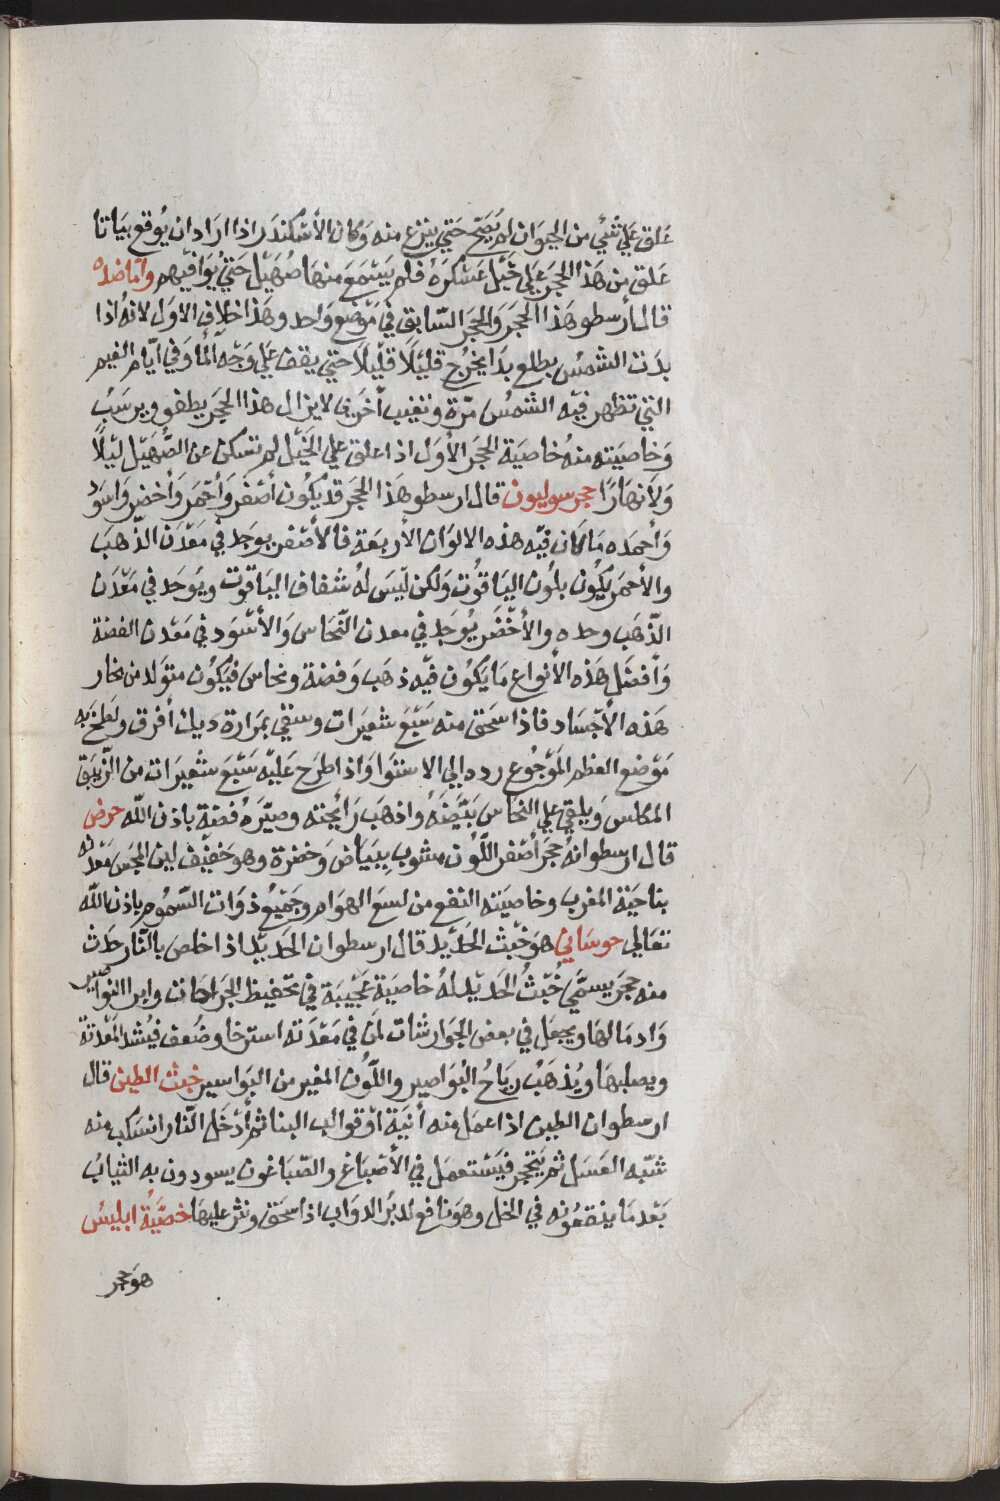 علق علي شئ من الحيوان لم يصح حتي ينزع منه وكان الأسكندر اذا اراد ان يوقع بياتا
علق من هذا الحجر علي خيل عسكره فلم يسمع منها صهيل حتي يوافيهم واما ضده
قال أرسطو هذا الحجر والحجر السابق في موضع واحد وهذا خلاف الاول لانه اذا
بدت الشمس يطلع بدا يخرج قليلا قليلا حتي يقف علي وجه الما وفي ايام الغيم
التي تظهر فيه الشمس مرة وتغيب أخري لا يزال هذا الحجر يطفو ويرسب
وخاصيته منه خاصية الحجر الأول اذا علق علي الخيل لم تسكن عن الصهيل ليلا
ولا نهارا حجر سوليون قال ارسطو هذا الحجر قد يكون أصفر وأحمر وأخضر واسود
وأحمده ما كان فيه هذه الالوان الأربعة فالأصفر يوجد في معدن الذهب
والأحمر يكون بلون الياقوت ولكن ليس له شفاف الياقوت ويوجد في معدن
الذهب وحده والأخضر يوجد في معدن النحاس والأسود في معدن الفضة
وأفضل هذه الأنواع ما يكون فيه ذهب وفضة ونحاس فيكون متولد من بخار
هذه الأجساد فاذا سحق منه سبع شعيرات وسقي بمرارة ديك أفرق ولطخ به
موضع العظم الموجوع رده الي الاستوا واذا طرح عليه سبع شعيرات من الزيبق
المكلس ويلقي علي النحاس بيضه واذهب رائحته وصيره فضة باذن الله حرض
قال ارسطو انه حجر أصفر اللون مشوب ببياض وخضرة وهو خفيف لين المجس معدنه
بناحية المغرب وخاصيته النفع من لسع الهوام وجميع ذوات السموم باذن الله
تعالي حوساي هو خبث الحديد قال ارسطو ان الحديد اذا خلص بالنار حدث
منه حجر يسمي خبث الحديد له خاصية عجيبة في تجفيظ الجراحات وابرا النواصير
واد مالها ويجعل في بعض الجوارشات لمن في معدته استرخا وضعف فيشد المعدة
ويصلبها ويذهب رياح البواصير واللون المغير من البواسير خبث الطين قال
ارسطو ان الطين اذا عمل منه أنية او قوالب البنا ثم أدخل النار انسكب منه
شبه العسل ثم يتحجر فيستعمل في الأصباغ والصباغون يسودون به الثياب
بعد ما ينقعونه في الخل وهو نافع لدبر الدواب اذا سحق ونثر عليها خصية ابليس
هو حجر